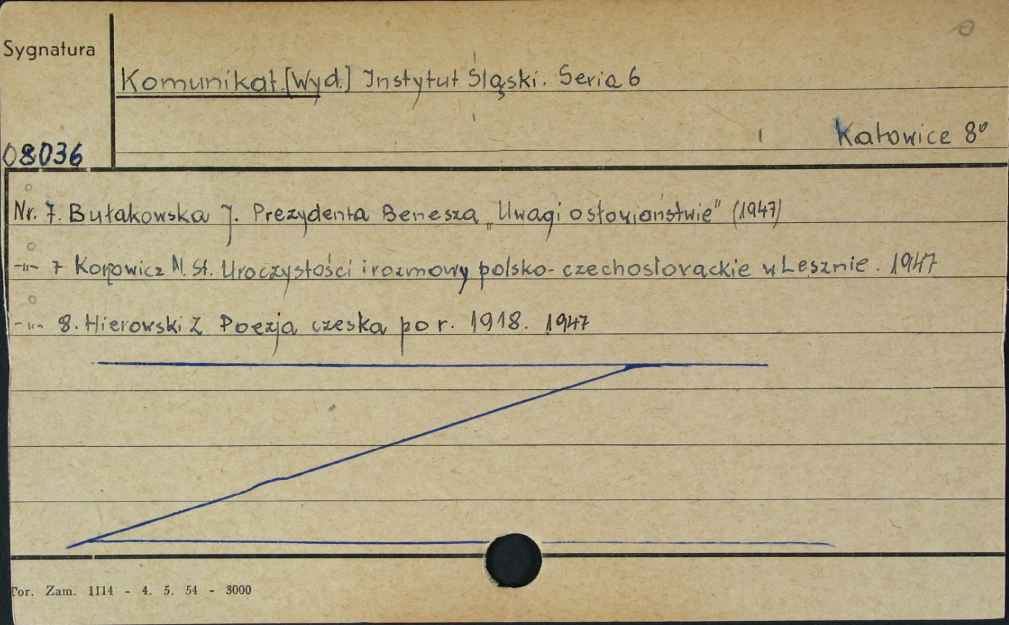 Sygnatura
Komunikat. [Wyd.] Instytut Śląski. Seria 6
Katowice 8°
08036
Nr. 7. Bułakowska J. Prezydenta Benesza „Uwagi o słowiaństwie" (1947)
-"- 7 Korowicz M. St. Uroczystości i rozmowy polsko-czechosłowackie w Lesznie. 1947
-"- 8. Hierowski Z Poezja czeska po r. 1918. 1947
Tor. Zam. 1114 - 4. 5. 54 - 3000